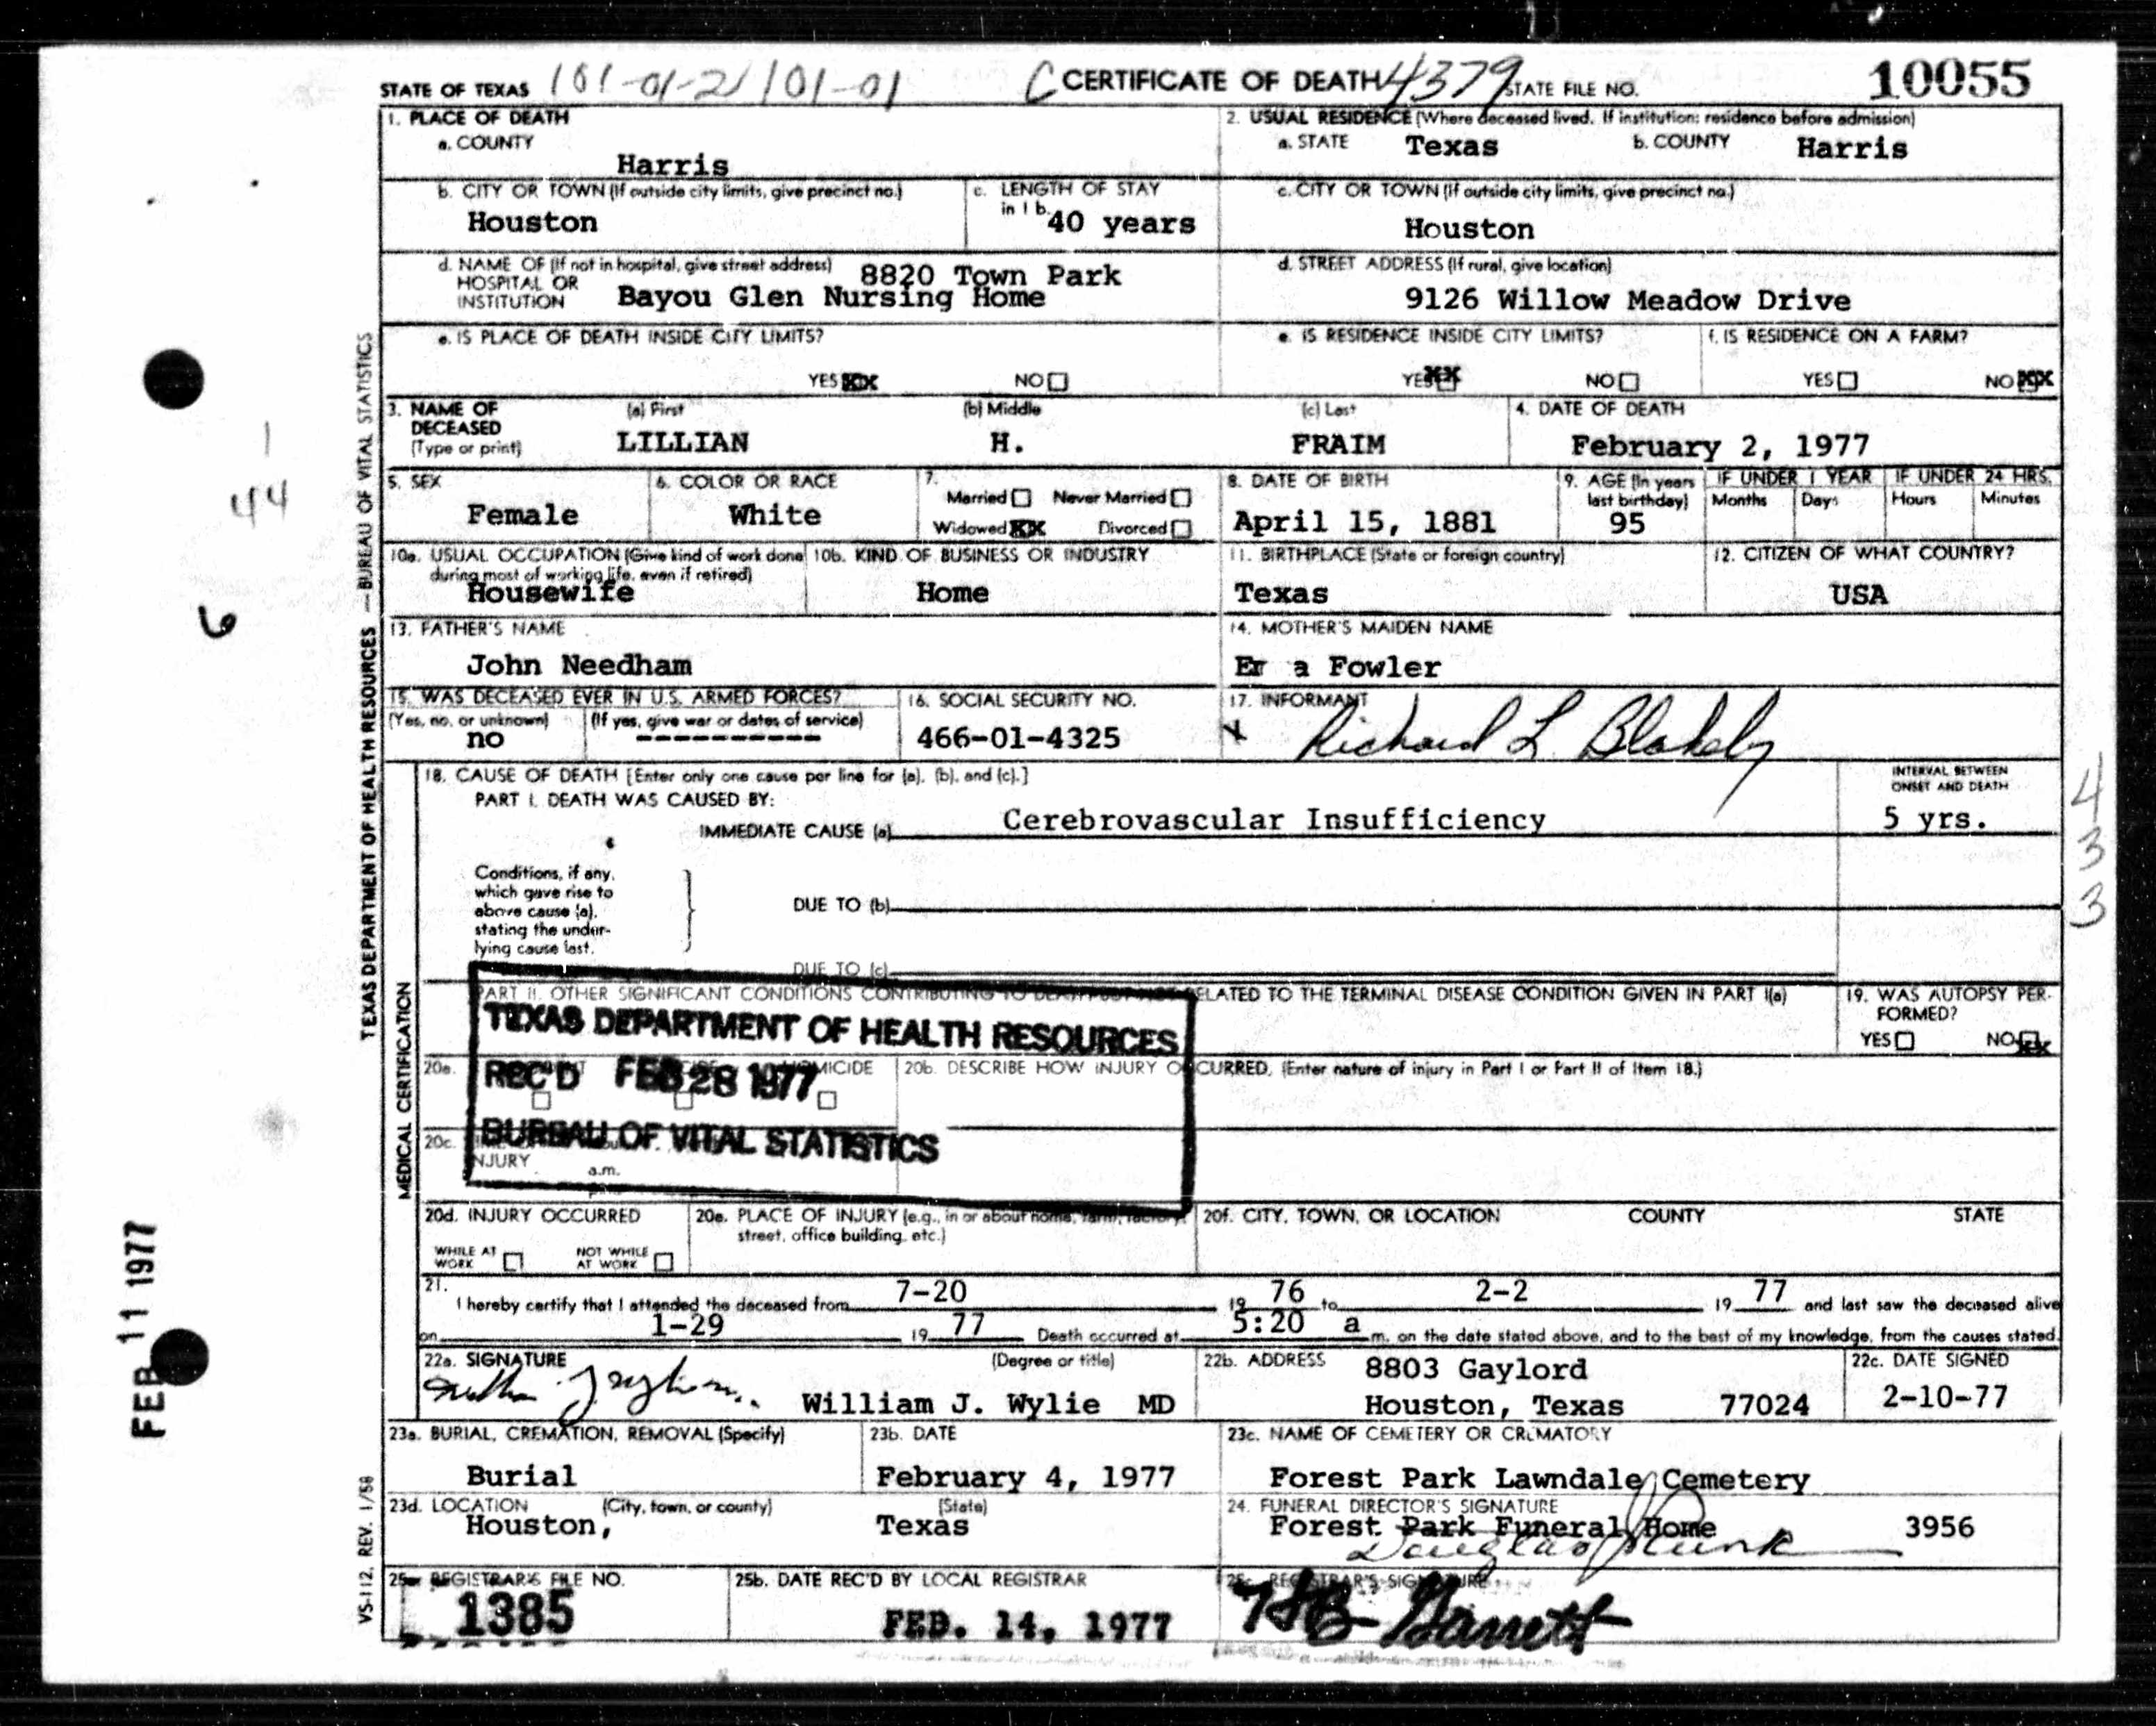 STATE OF TEXAS 101-01-2/101-01 C CERTIFICATE OF DEATH 4379 STATE FILE NO. 10055
1. PLACE OF DEATH
a. COUNTY
Harris
2. USUAL RESIDENCE (Where deceased lived. If institution: residence before admission)
a. STATE Texas b. COUNTY Harris
b. CITY OR TOWN (If outside city limits, give precinct no.)
Houston
c. LENGTH OF STAY
in 1 b. 40 years
c. CITY OR TOWN (If outside city limits, give precinct no.)
Houston
d. NAME OF (If not in hospital, give street address) 8820 Town Park
HOSPITAL OR
INSTITUTION Bayou Glen Nursing Home
d. STREET ADDRESS (If rural, give location)
9126 Willow Meadow Drive
e. IS PLACE OF DEATH INSIDE CITY LIMITS?
YES XX NO
e. IS RESIDENCE INSIDE CITY LIMITS?
YES XX NO
f. IS RESIDENCE ON A FARM?
YES NO XX
3. NAME OF
DECEASED
(Type or print)
(a) First (b) Middle (c) Last
LILLIAN H. FRAIM
4. DATE OF DEATH
February 2, 1977
5. SEX
Female
6. COLOR OR RACE
White
7.
Married Never Married
Widowed XX Divorced
8. DATE OF BIRTH
April 15, 1881
9. AGE (In years
last birthday)
95
IF UNDER 1 YEAR
Months Days
IF UNDER 24 HRS.
Hours Minutes
10a. USUAL OCCUPATION (Give kind of work done
during most of working life, even if retired)
Housewife
10b. KIND OF BUSINESS OR INDUSTRY
Home
11. BIRTHPLACE (State or foreign country)
Texas
12. CITIZEN OF WHAT COUNTRY?
USA
13. FATHER'S NAME
John Needham
14. MOTHER'S MAIDEN NAME
Er a Fowler
15. WAS DECEASED EVER IN U.S. ARMED FORCES?
(Yes, no, or unknown) (If yes, give war or dates of service)
no ----------
16. SOCIAL SECURITY NO.
466-01-4325
17. INFORMANT
x Richard L Blakely
18. CAUSE OF DEATH [Enter only one cause per line for (a), (b), and (c).]
PART I. DEATH WAS CAUSED BY:
IMMEDIATE CAUSE (a) Cerebrovascular Insufficiency
INTERVAL BETWEEN
ONSET AND DEATH
5 yrs.
Conditions, if any,
which gave rise to
above cause (a),
stating the under-
lying cause last.
DUE TO (b)
DUE TO (c)
PART II. OTHER SIGNIFICANT CONDITIONS CONTRIBUTING TO DEATH BUT NOT RELATED TO THE TERMINAL DISEASE CONDITION GIVEN IN PART I(a)
19. WAS AUTOPSY PER-
FORMED?
YES NO XX
TEXAS DEPARTMENT OF HEALTH RESOURCES
REC'D FEB 28 1977
BUREAU OF VITAL STATISTICS
20a. HOMICIDE
20b. DESCRIBE HOW INJURY OCCURRED. (Enter nature of injury in Part I or Part II of Item 18.)
20c.
INJURY a.m.
20d. INJURY OCCURRED
WHILE AT
WORK
NOT WHILE
AT WORK
20e. PLACE OF INJURY (e.g., in or about home, farm, factory,
street, office building, etc.)
20f. CITY, TOWN, OR LOCATION COUNTY STATE
21.
I hereby certify that I attended the deceased from 7-20 19 76 to 2-2 19 77 and last saw the deceased alive
on 1-29 19 77 Death occurred at 5:20 a m. on the date stated above, and to the best of my knowledge, from the causes stated.
22a. SIGNATURE (Degree or title)
William J. Wylie MD
22b. ADDRESS 8803 Gaylord
Houston, Texas 77024
22c. DATE SIGNED
2-10-77
23a. BURIAL, CREMATION, REMOVAL (Specify)
Burial
23b. DATE
February 4, 1977
23c. NAME OF CEMETERY OR CREMATORY
Forest Park Lawndale Cemetery
23d. LOCATION (City, town, or county) (State)
Houston, Texas
24. FUNERAL DIRECTOR'S SIGNATURE
Forest Park Funeral Home 3956
Douglas
25a. REGISTRAR'S FILE NO.
1385
25b. DATE REC'D BY LOCAL REGISTRAR
FEB. 14, 1977
25c. REGISTRAR'S SIGNATURE
HB Barrett
TEXAS DEPARTMENT OF HEALTH RESOURCES — BUREAU OF VITAL STATISTICS
MEDICAL CERTIFICATION
VS-112, REV. 1/58
1
44
6
FEB 11 1977
4
3
3